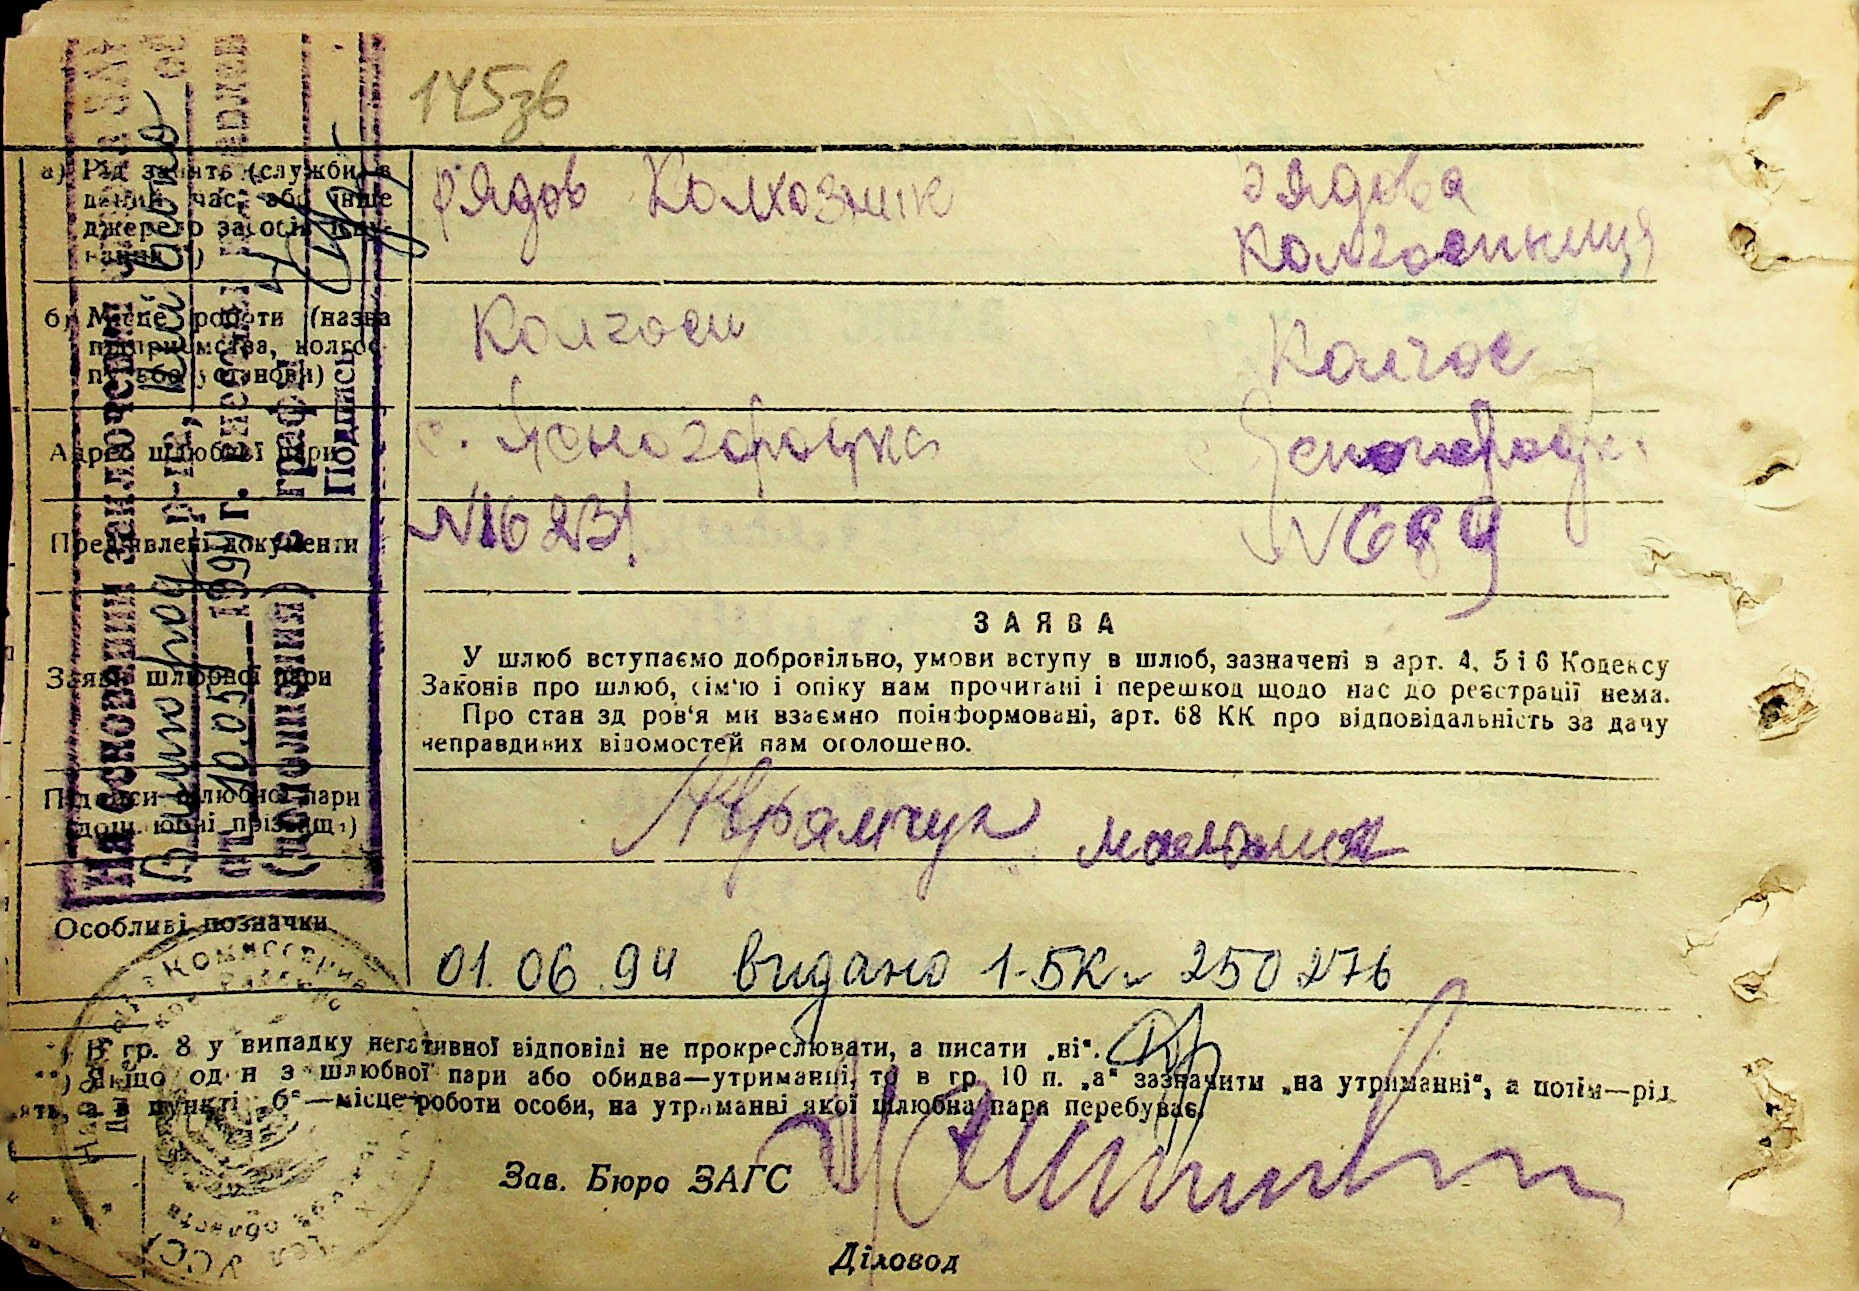 145зв
а) Рід занять (служби) в даний час або інше джерело засобів існування
рядов Колхозник
рядова
колгоспниця
б) Місце роботи (назва підприємства, колгоспу або установи)
Колгосп
Колгос
Адреб шлюбної пари
с. Ясногородка
с Ясногородка
Пред'явлені документи
№ 689
Заява шлюбної пари
ЗАЯВА
У шлюб вступаємо добровільно, умови вступу в шлюб, зазначені в арт. 4, 5 і 6 Кодексу
Законів про шлюб, сім'ю і опіку нам прочитані і перешкод щодо нас до реєстрації нема.
Про стан здоров'я ми взаємно поінформовані, арт. 68 КК про відповідальність за дачу
неправдивих відомостей нам оголошено.
Підписи шлюбної пари
(дошлюбні прізвищ)
Аврамчук
Особливі позначки
01.06.94 видано 1-БК № 250276
В гр. 8 у випадку негативної відповіді не прокреслювати, а писати „ні“.
**) Якщо один з шлюбної пари або обидва—утриманці, то в гр. 10 п. „а“ зазначити „на утриманні“, а потім—рід
занять, а в пункті „б“—місце роботи особи, на утриманні якої шлюбна пара перебуває.
Зав. Бюро ЗАГС
Діловод
На основании заключения
р-на,
от 10.05 1994 г. внесены
(дополнения) в графы
Подпись